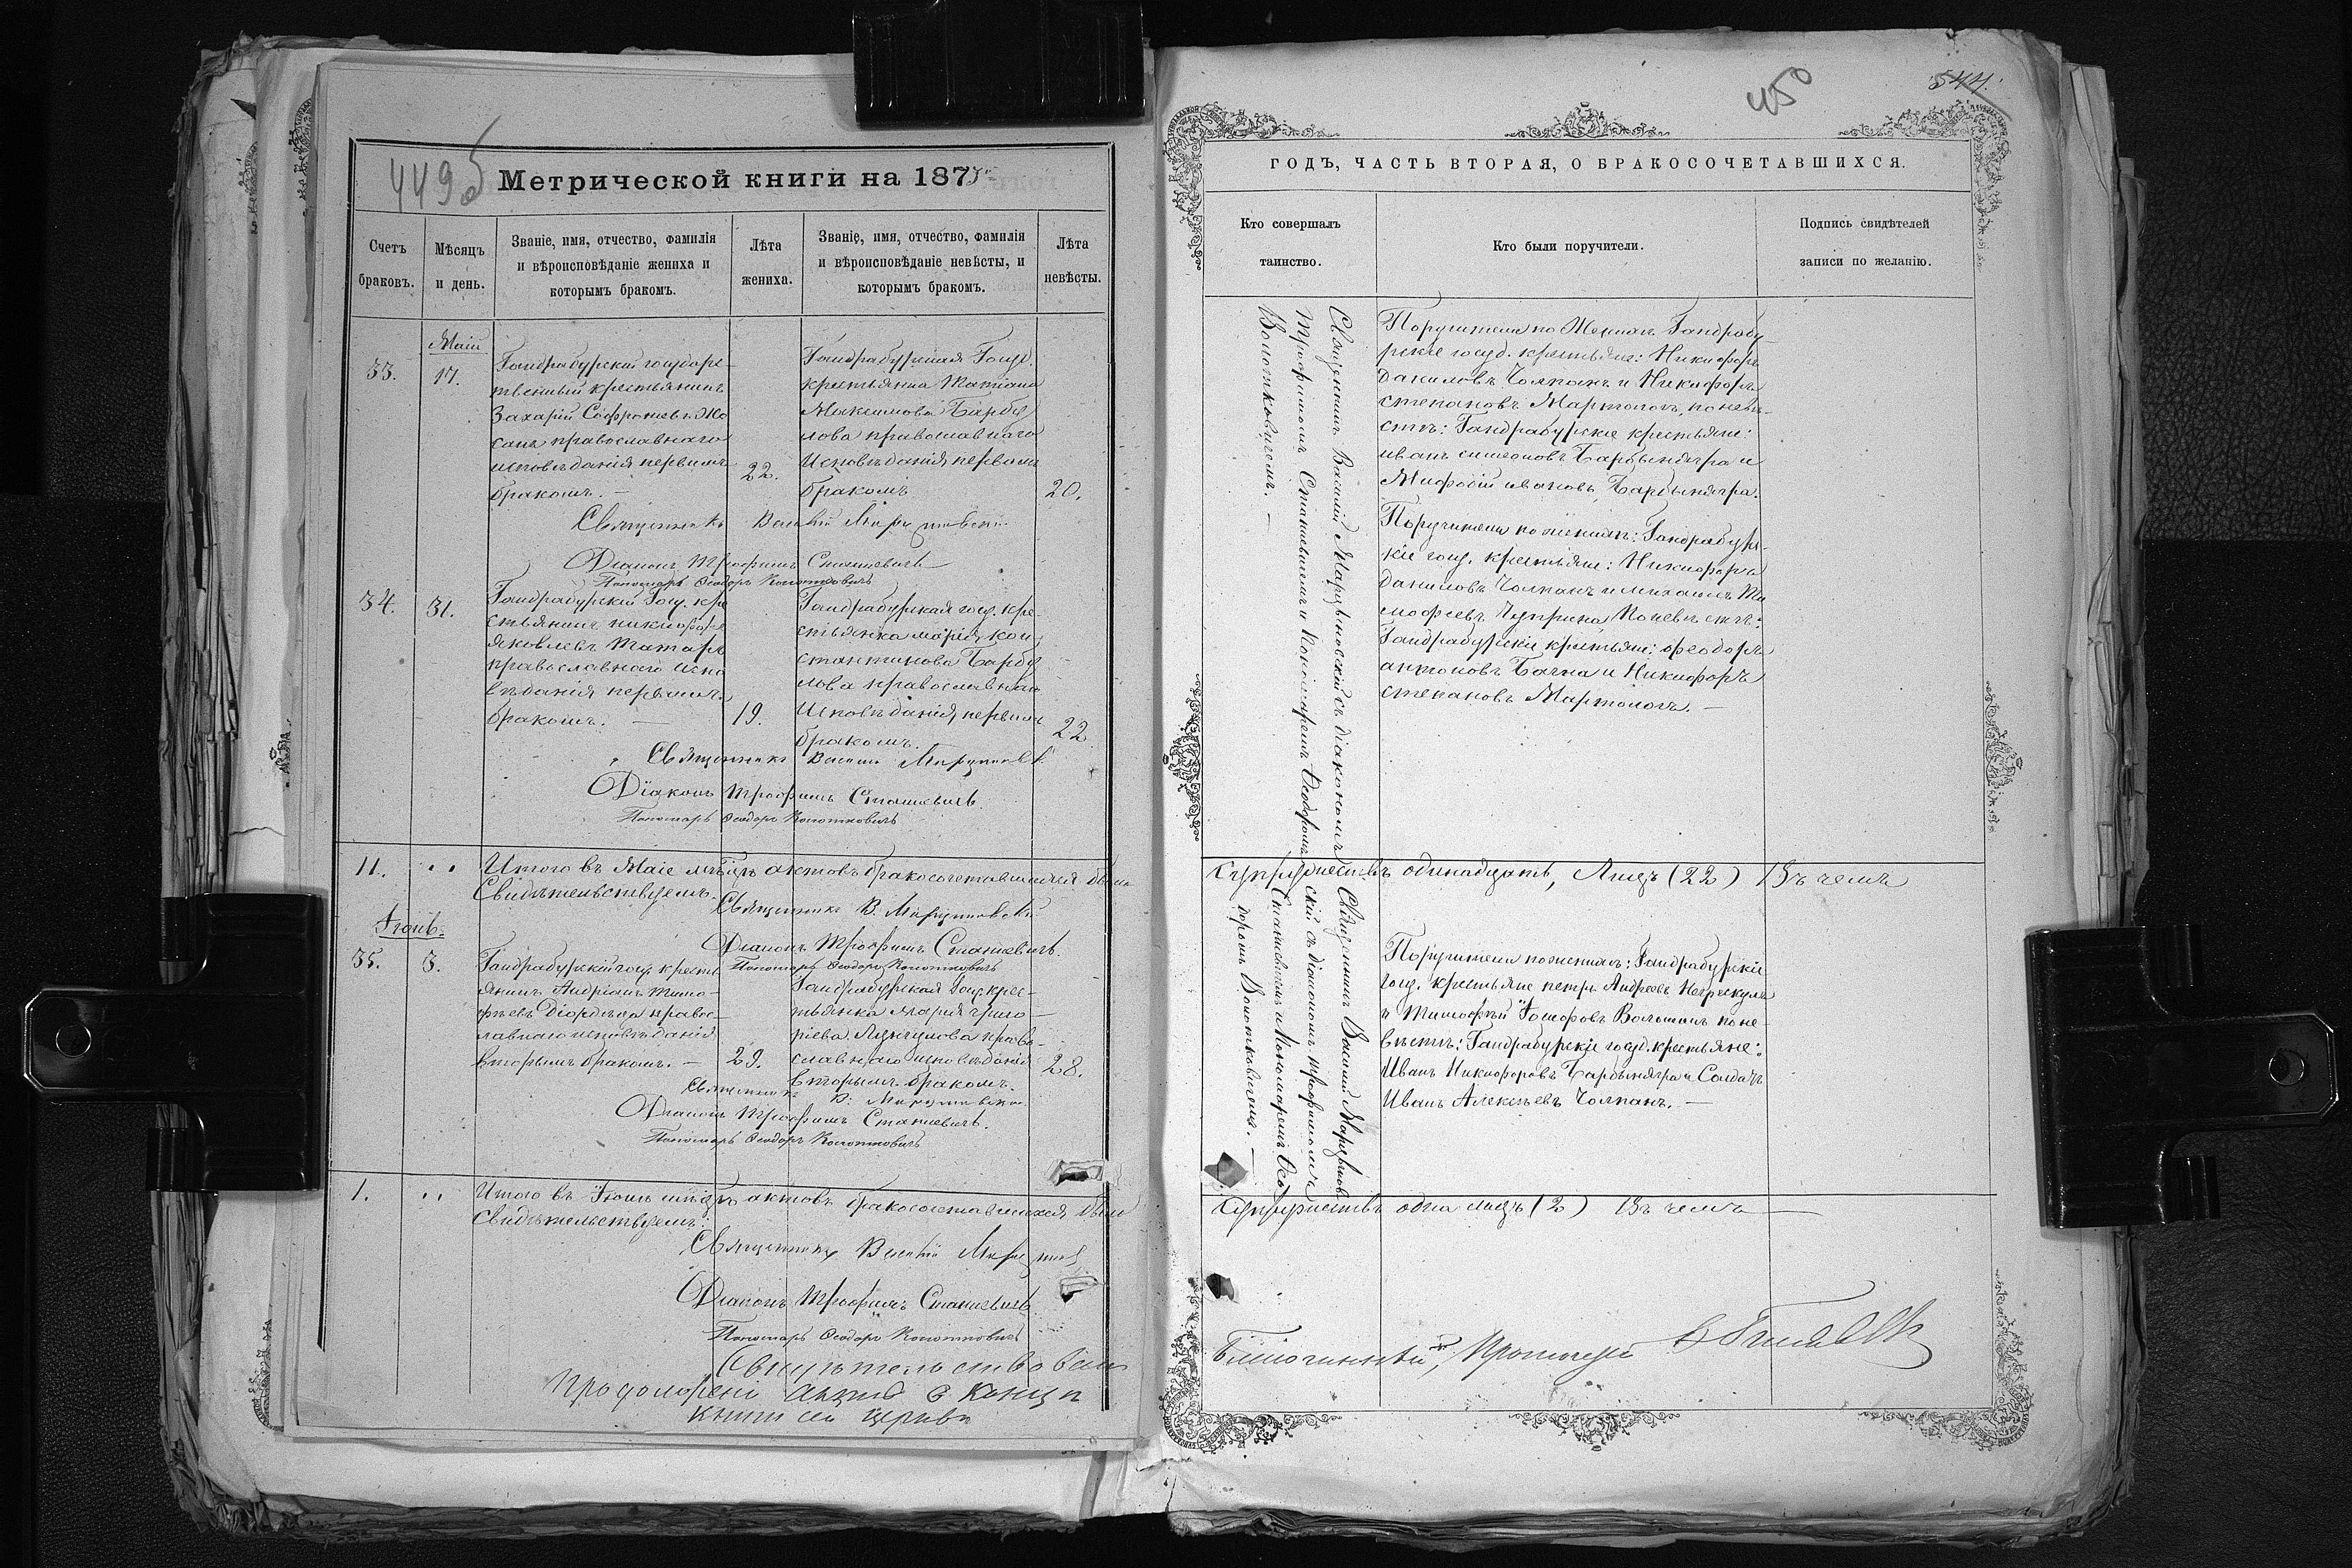 449об
Метрической книги на 1875
Счетъ браковъ.
Мѣсяцъ и день.
Званіе, имя, отчество, фамилія и вѣроисповѣданіе жениха и которымъ бракомъ.
Лѣта жениха.
Званіе, имя, отчество, фамилія и вѣроисповѣданіе невѣсты, и которымъ бракомъ.
Лѣта невѣсты.
Маій
33.
17.
Гандрабурскій государс-
твенный крестьянинъ
Захарій Софроніевъ
православнаго
исповѣданія первымъ
бракомъ. —
22.
Гандрабурская Госуд.
крестьянка Татіана
Максимова Барбу
лова православнаго
Исповѣданія, первымъ
бракомъ
20.
Священникъ Василій Марциновскій
Діаконъ Трофимъ Станкевичъ
Пономарь Ѳеодоръ Колотковичъ
34.
31.
Гандрабурскій Госу. кре
стьянинъ никифоръ
яковлевъ Татаръ
православнаго испо
вѣданія первымъ
бракомъ. —
19.
Гандрабурская госу. кре-
стьянка марія кон
стантинова Барбу
лова православнаго
Исповѣданія, первымъ
бракомъ.
22
Священникъ Василій Марциновскій
Діаконъ Трофимъ Станкевичъ.
Пономарь Ѳеодоръ Колотковичъ
11.
Итого въ Маіе мѣсяцѣ актовъ бракосочетавшихся было
Свидѣтельствуемъ.
Священникъ В. Марциновскій
Діаконъ Трофимъ Станкевичъ.
Пономарь Ѳеодоръ Колотковичъ
Іюнь.
35.
3.
Гандрабурскій госу. кресть
янинъ Андріанъ Тимо-
феевъ Діордіца правос-
лавнаго исповѣданія
вторымъ бракомъ. —
29.
Гандрабурская Госу. крес-
тьянка Марія григо-
ріева правo-
славнаго исповѣданія
вторымъ бракомъ.
28.
Священникъ В. Марциновскій
Діаконъ Трофимъ Станкевичъ.
Пономарь Ѳеодоръ Колотковичъ
1.
Итого въ Іюнѣ мѣсяцѣ актовъ бракосочетавшихся, было
свидѣтельствуемъ:
Священникъ Василій Марцинов
Діаконъ Трофимъ Станкевичъ.
Пономарь Ѳеодоръ Колотковичъ
Свидѣтельствовалъ
Продолженіе актов в концѣ
книги сей церкви
450
544.
ГОДЪ, ЧАСТЬ ВТОРАЯ, О БРАКОСОЧЕТАВШИХСЯ.
Кто совершалъ таинство.
Кто были поручители.
Подпись свидѣтелей записи по желанію.
Священникъ Василій Марциновскій съ діакономъ
Трофимомъ Станкевичемъ и Пономаремъ Ѳеодоромъ
Колотковичемъ. —
Поручители по Женихѣ Гандрабу-
рскіе госуд. крестьяне: Никифоръ
Даниловъ Чолпанъ и Никифоръ
степановъ Мартологъ, по невѣ-
стѣ: Гандрабурскіе крестьяне:
иванъ симеоновъ Барбынягра и
Миѳодій ивановъ Барбынягра.
Поручители по женихѣ: Гандрабурс-
кіе госу. крестьяне: Никифоръ
Даниловъ Чолпанъ и михаилъ Ти
мофеевъ Чуприна По невѣстѣ:
Гандрабурскіе крестьяне: ѳеодоръ
антоновъ Бачна и Никифоръ
степановъ Мартологъ. —
Супружествъ одинадцать, Лицъ (22) Въ чемъ
Священникъ Василій Марцинов
скій съ діакономъ трофимомъ
Станкевичемъ и Пономаремъ Ѳео
доромъ Колотковичемъ. —
Поручители по женихѣ: Гандрабурскіе
госу. крестьяне петръ Андреевъ Негрескулъ
и Тимофѣй Волошинъ по не-
вѣстѣ: Гандрабурскіе госуд. крестьяне:
Иванъ Никифоровъ Барбынягра и Солдатъ
Иванъ Алексѣевъ Чолпанъ. —
Супружествъ одна лицъ (2) Въ чемъ
Благочинный, Протоіерей